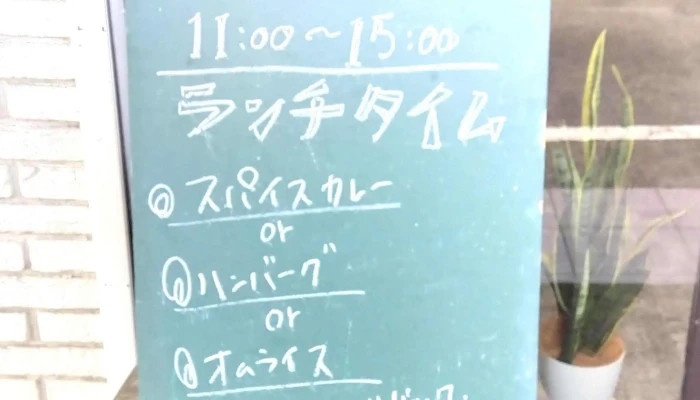 11:00~15:00
ランチタイム
◎ スパイスカレー
or
◎ ハンバーグ
or
◎ オムライス